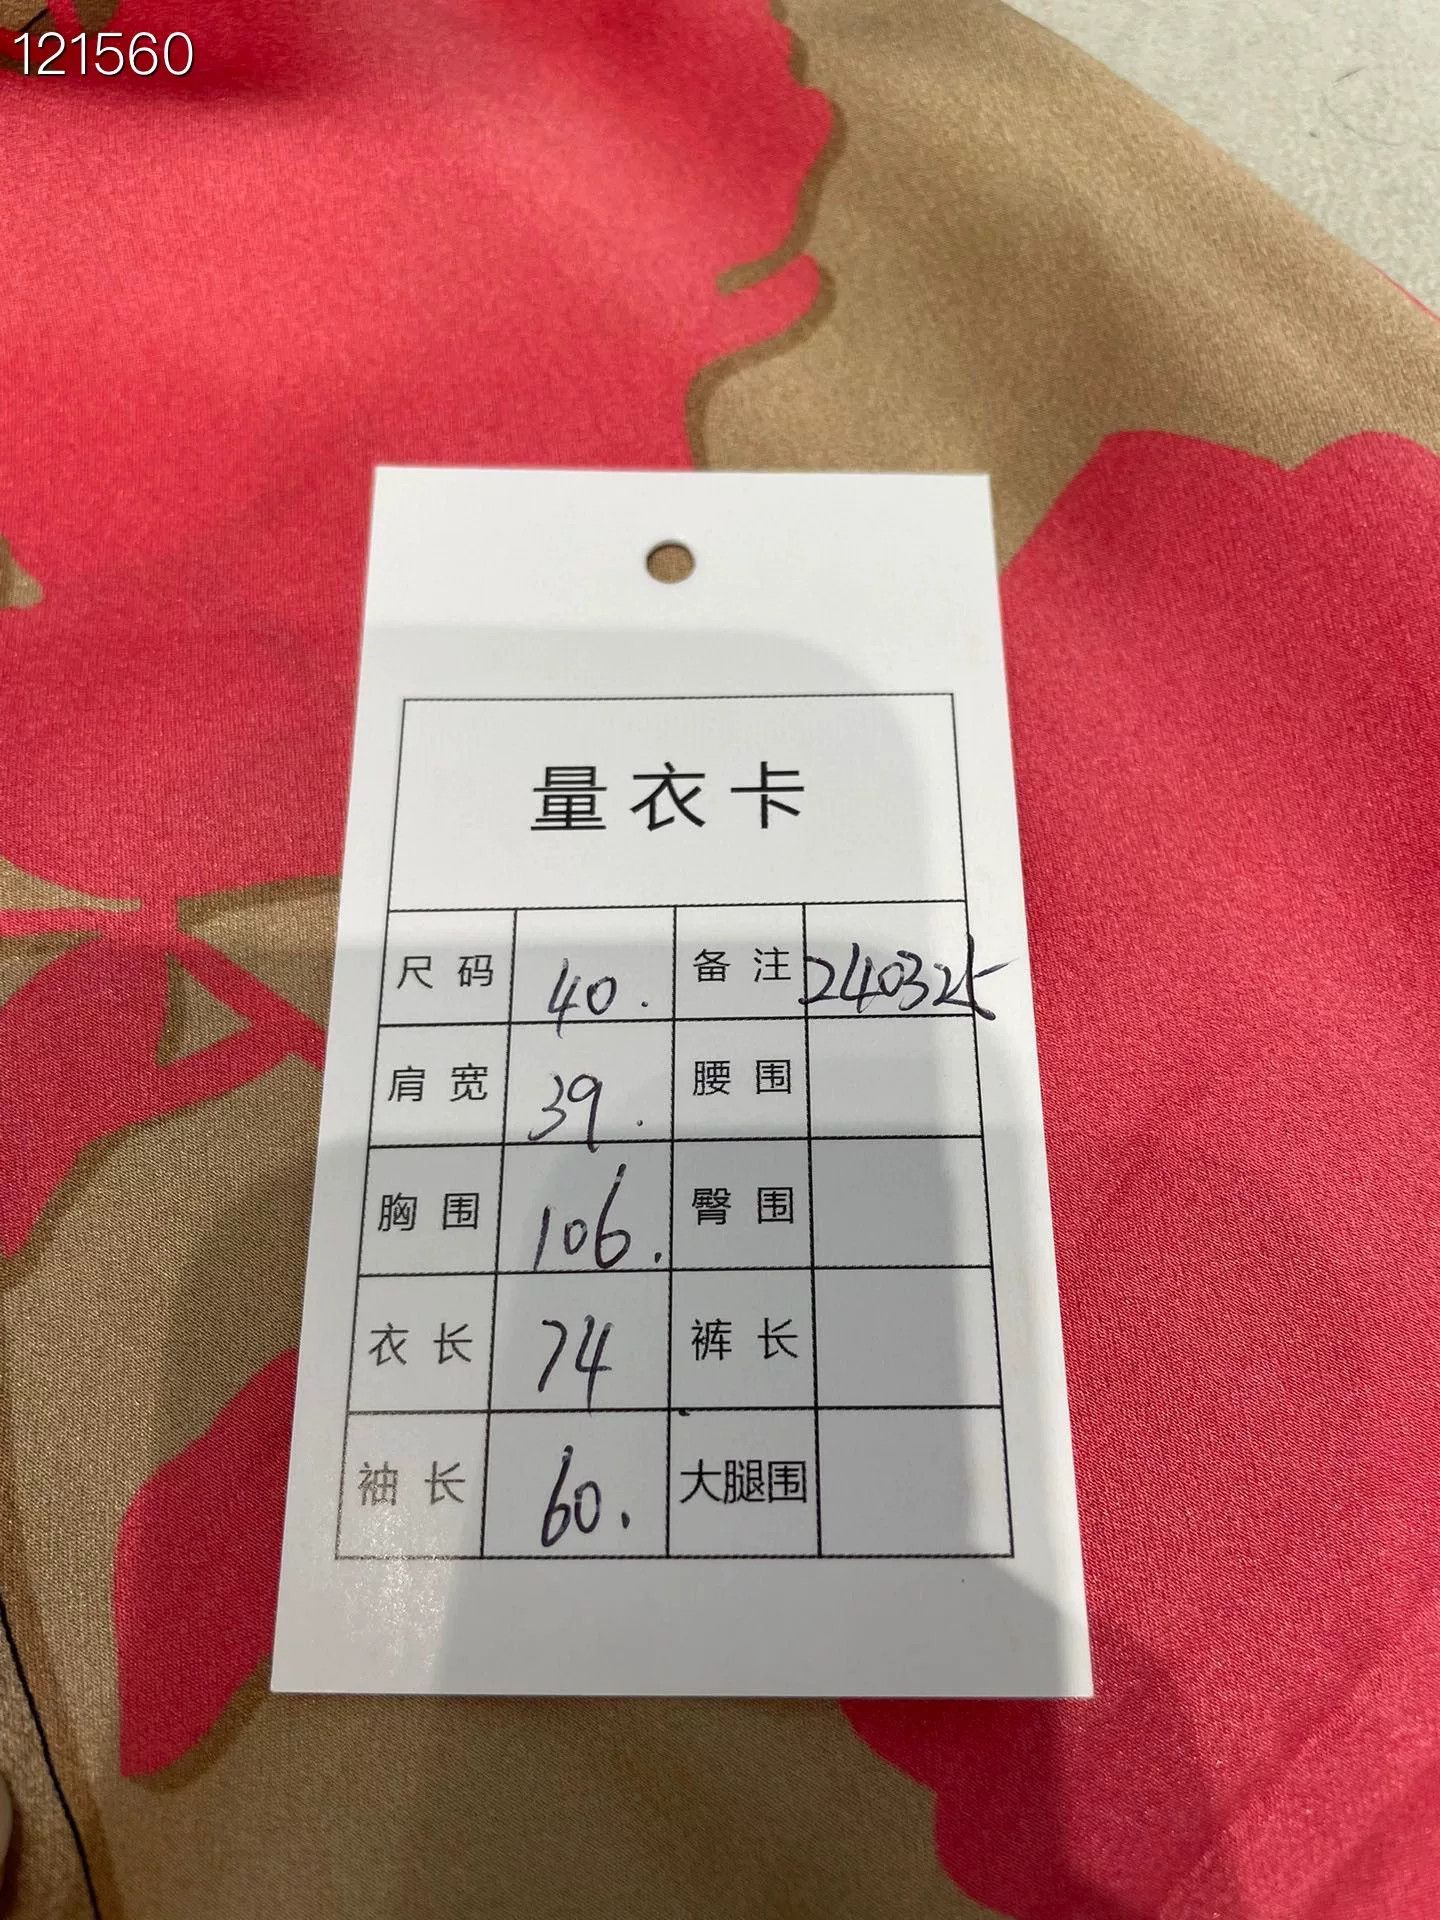 121560
量衣卡
尺码 40. 备注 240325
肩宽 39. 腰围
胸围 106. 臀围
衣长 74 裤长
袖长 60. 大腿围